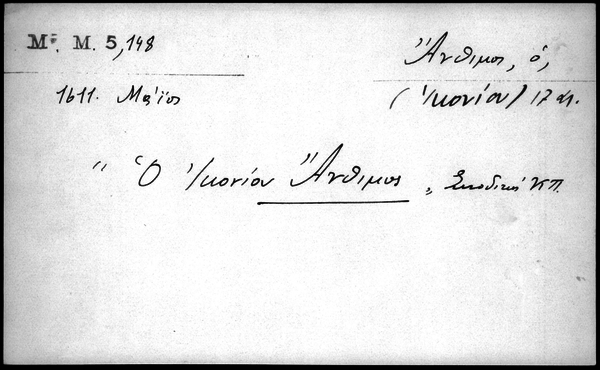 Μ. Μ. 5,148
Ἄνθιμος, ὁ,
1611. Μάϊος
(Ἰκονίου) 17 αι.
"Ὁ Ἰκονίου Ἄνθιμος", Συνοδικά ΚΠ.